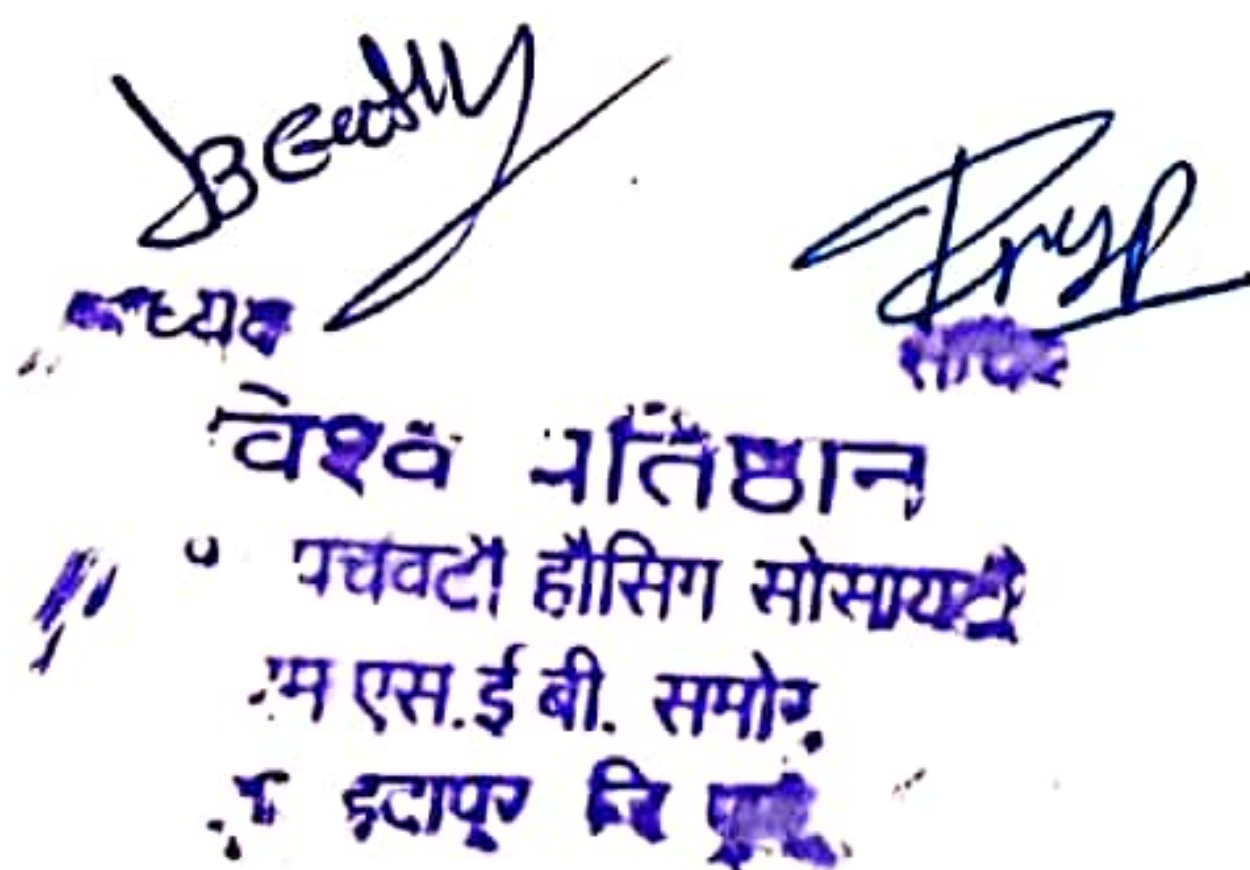 अध्यक्ष
सचिव
विश्व प्रतिष्ठान
पंचवटी हौसिंग सोसायटी
एम एस.ई बी. समोर,
इंदापूर जि पुणे